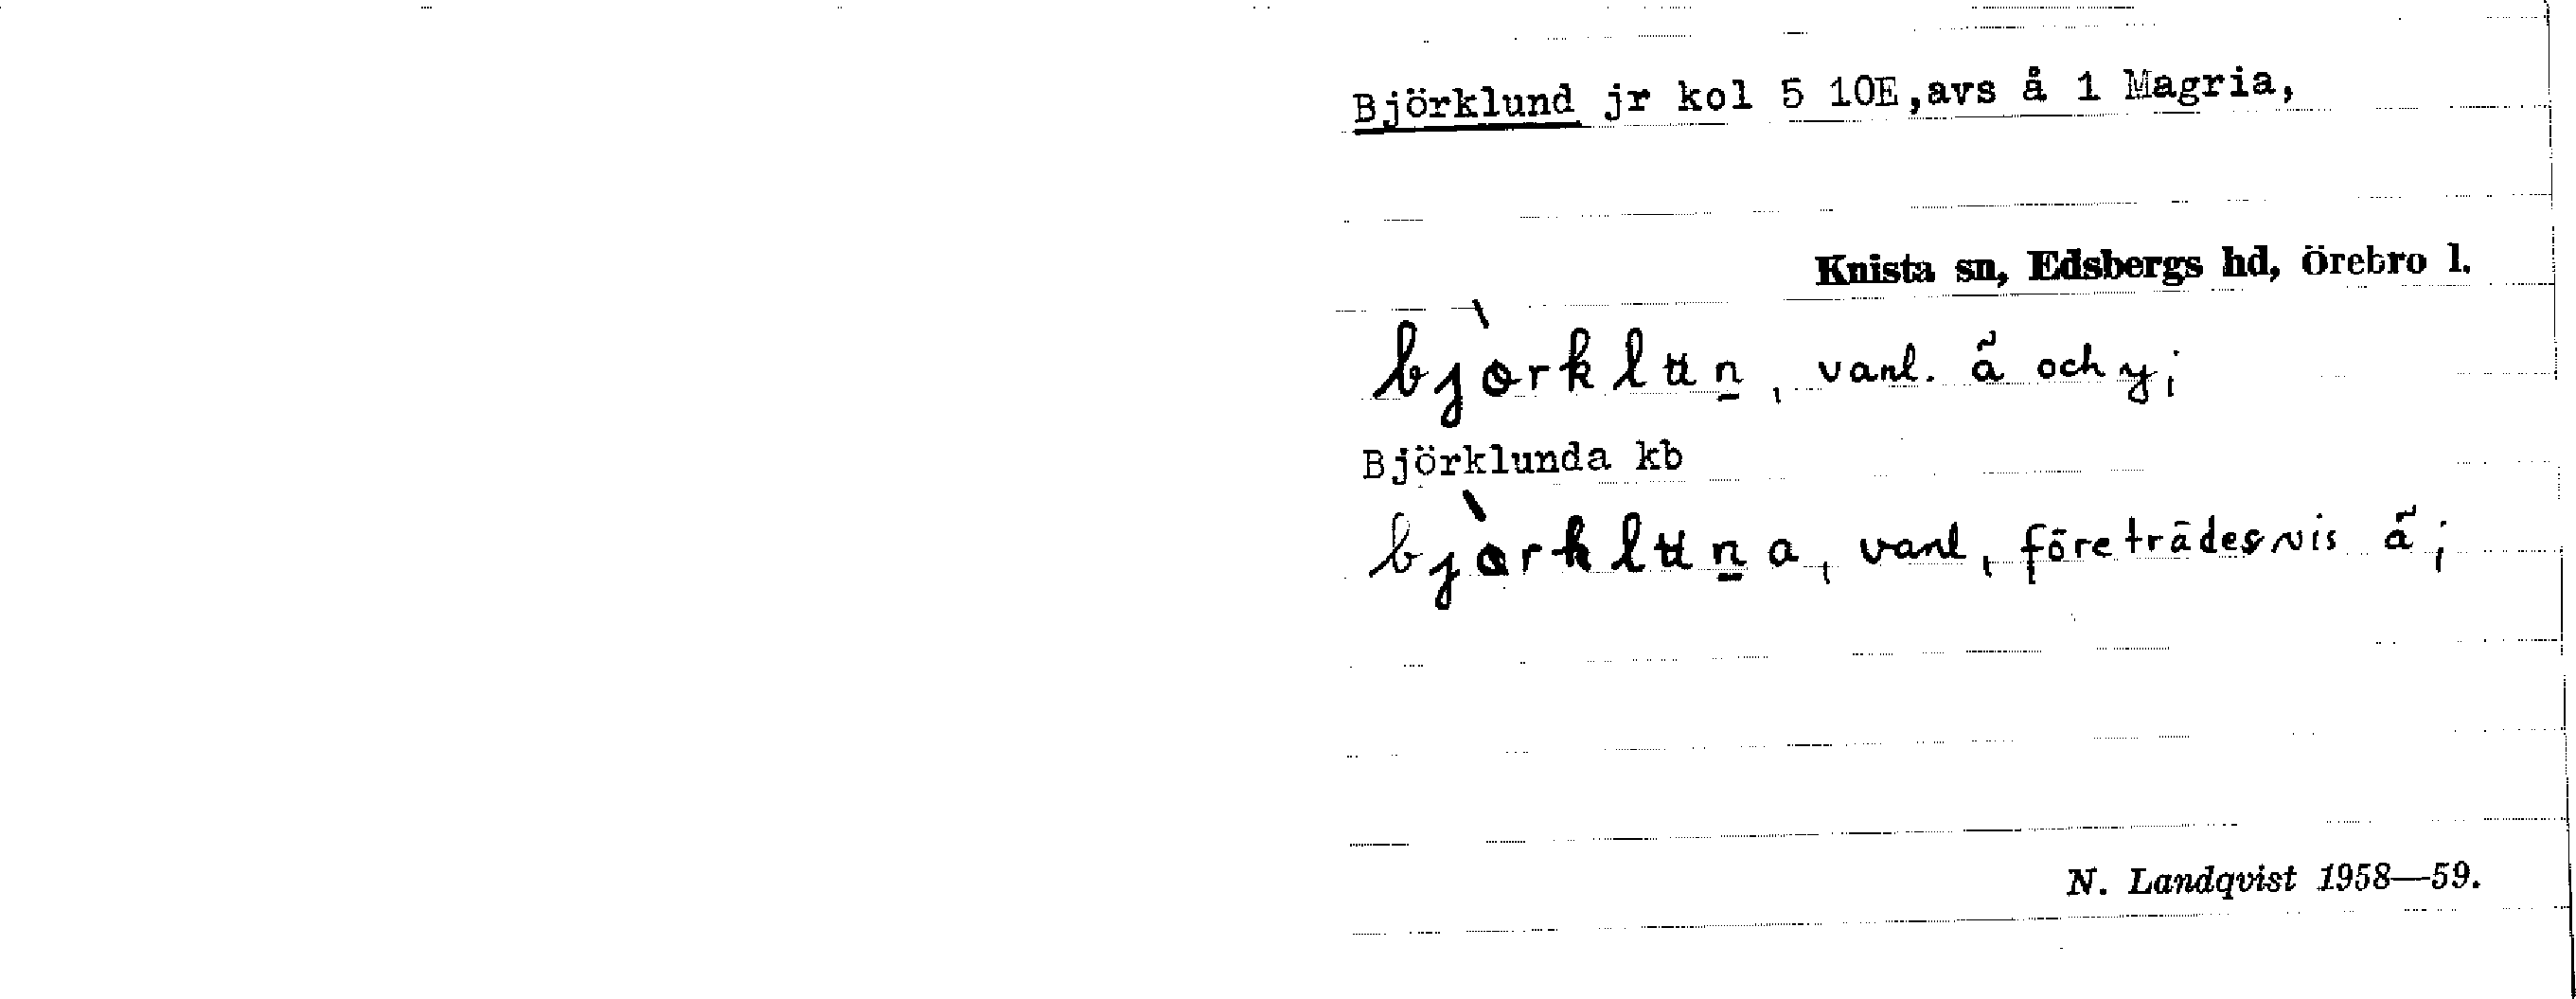 Björklund jr kol 5 10E,avs å 1 Magria,
Knista sn, Edsbergs hd, Örebro l.
bjòrklun̲, vanl. ä̃ och y;
Björklunda kb
bjòrklun̲a, vanl, företrädesvis ä̃;
N. Landqvist 1958—59.